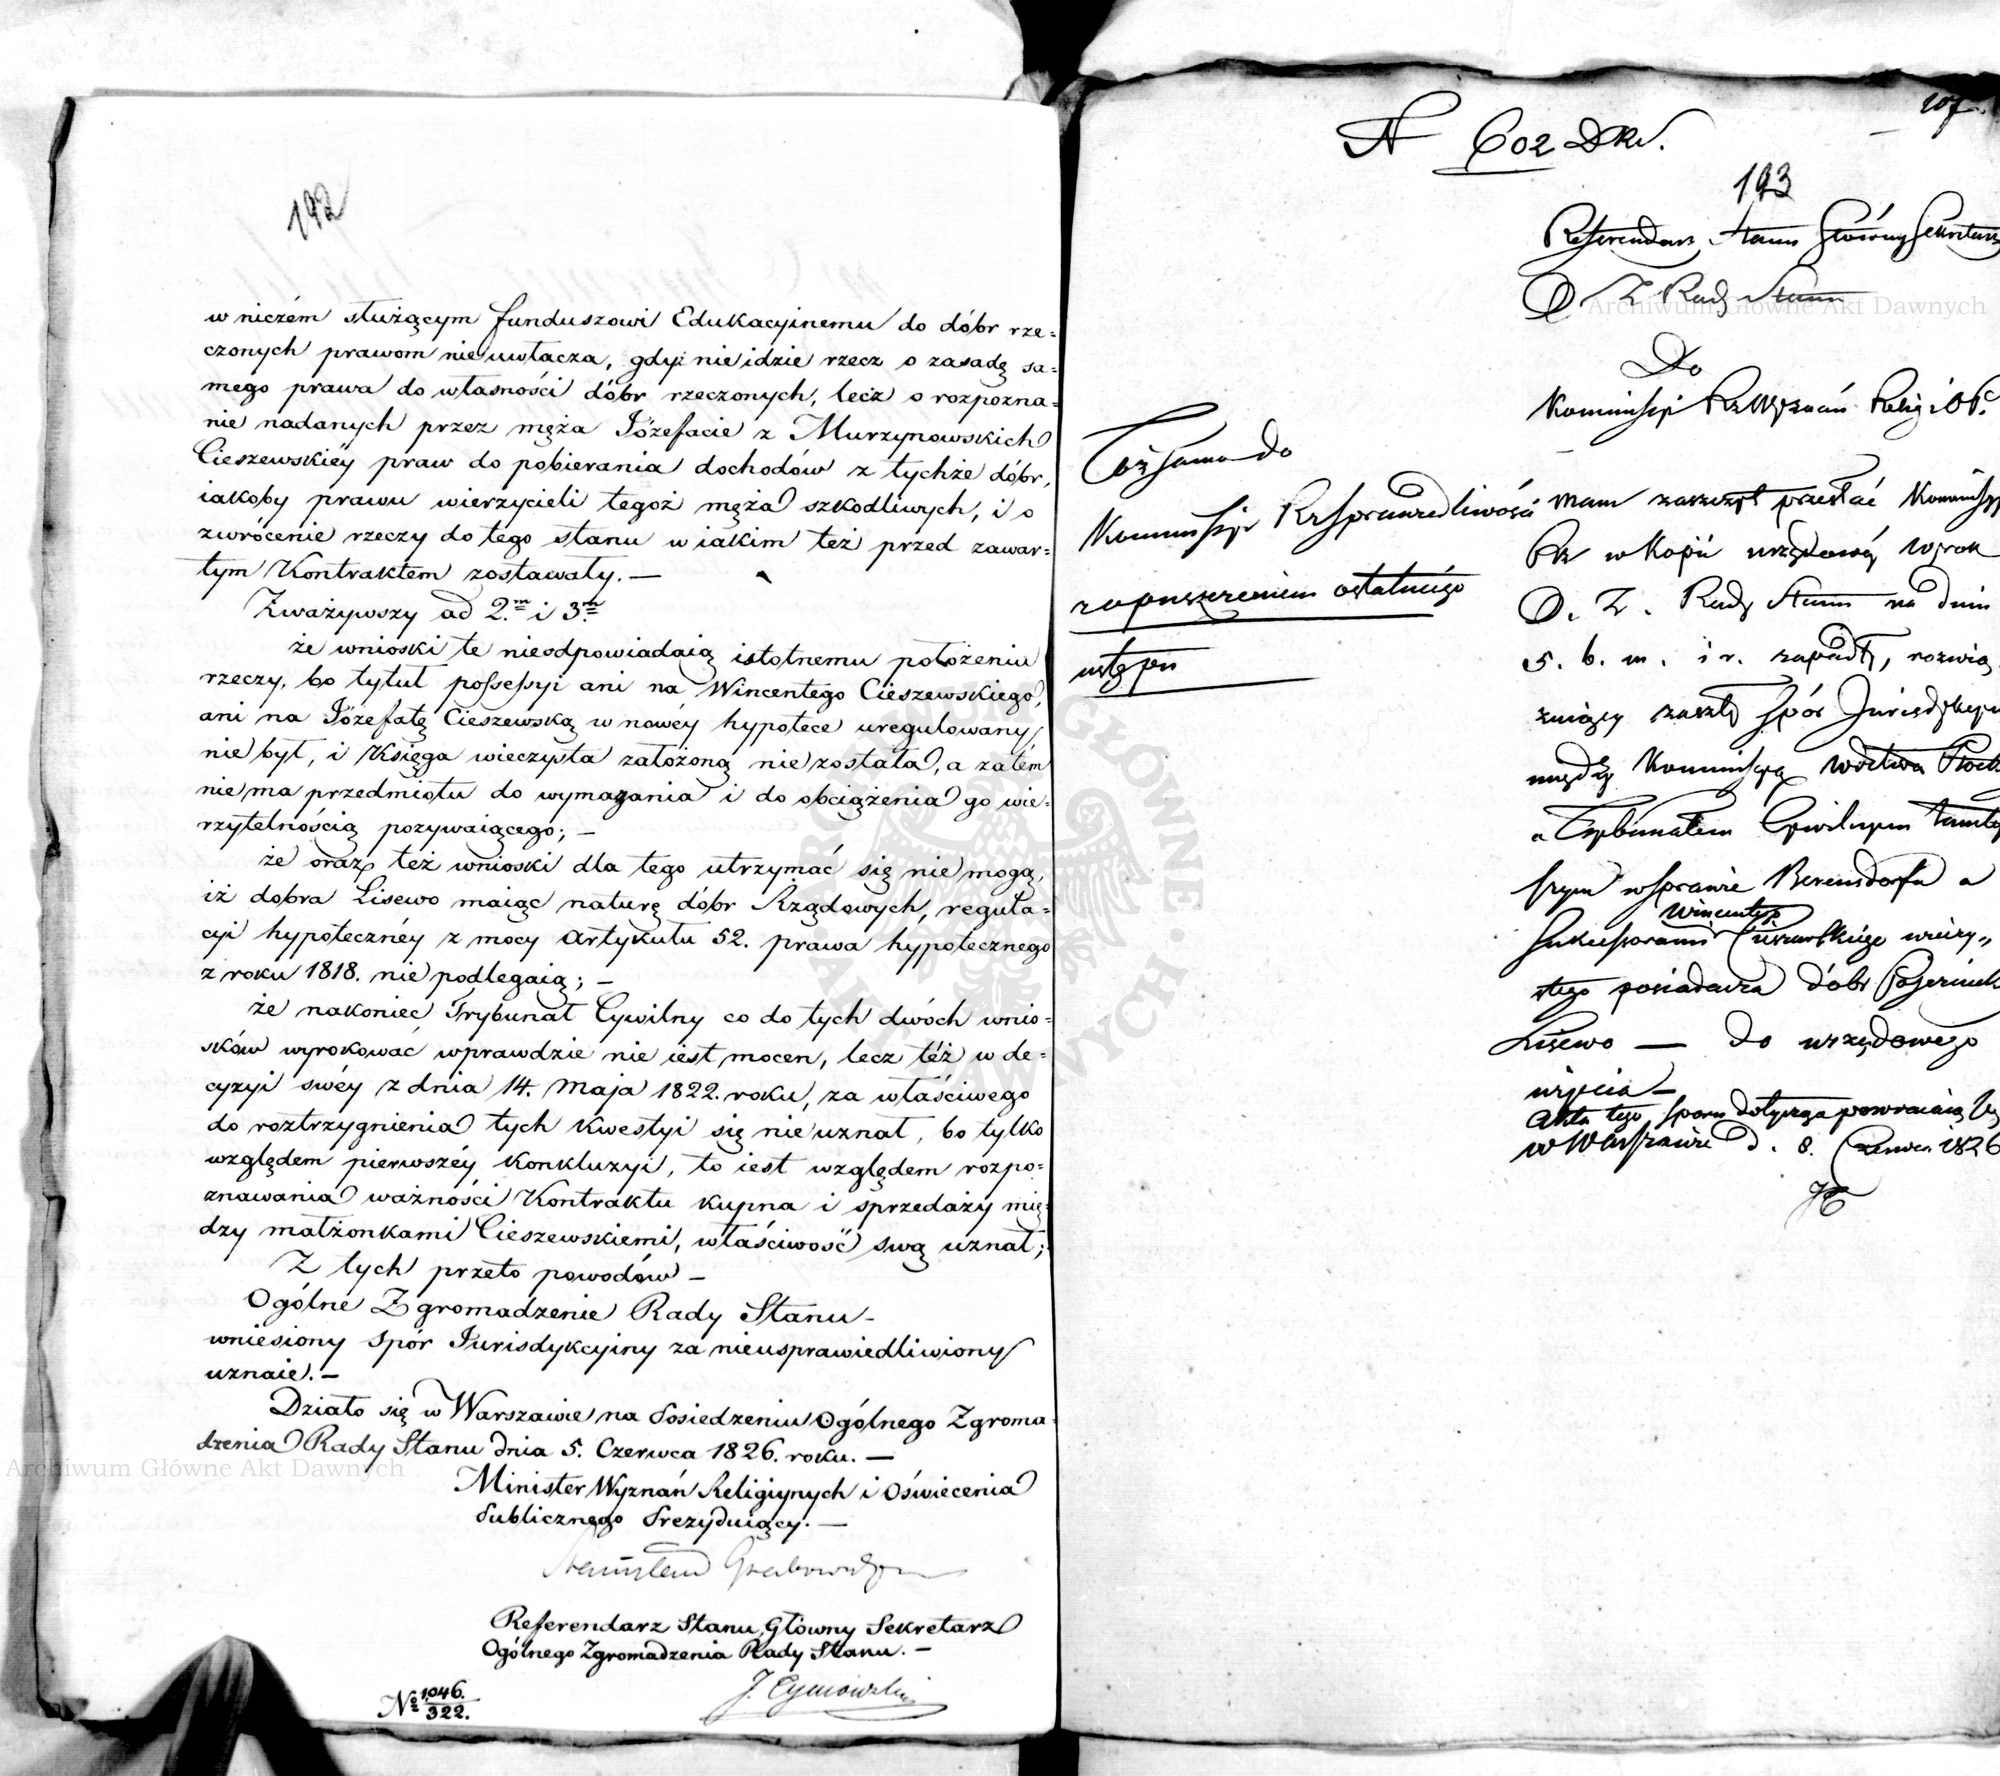 192
w niczém służącym funduszowi Edukacyinemu do dóbr rze=
czonych prawom nie uwłacza, gdyż nie idzie rzecz o zasadę sa=
mego prawa do własności dóbr rzeczonych, lecz o rozpozna=
nie nadanych przez męża Józefacie z Murzynowskich
Cieszewskiéy praw do pobierania dochodów z tychże dóbr,
iakoby prawu wierzycieli tegoż męża szkodliwych, i o
zwrócenie rzeczy do tego stanu w iakim też przed zawar=
tym Kontraktem zostawały. —
Zważywszy ad 2.m i 3.m
że wnioski te nieodpowiadaią istotnemu położeniu
rzeczy, bo tytuł possessyi ani na Wincentego Cieszewskiego,
ani na Józefatę Cieszewską w nowéy hypotece uregulowany
nie był, i Księga wieczysta założoną nie została, a zatém
nie ma przedmiotu do wymazania i do obciążenia go wie=
rzytelnością pozywaiącego; —
że oraz też wnioski dla tego utrzymać się nie mogą,
iż dobra Lisewo maiąc naturę dóbr Rządowych, regula=
cyi hypotecznéy z mocy artykułu 52. prawa hypotecznego
z roku 1818. nie podlegaią; —
że nakoniec Trybunał Cywilny co do tych dwóch wnio=
sków wyrokować wprawdzie nie iest mocen, lecz téż w de=
cyzyi swéy z dnia 14. Maja 1822. roku, za właściwego
do roztrzygnienia tych kwestyi się nie uznał, bo tylko
względem pierwszéy konkluzyi, to iest względem rozpo=
znawania ważności Kontraktu kupna i sprzedaży mię=
dzy małżonkami Cieszewskiemi, właściwość swą uznał;
Z tych przeto powodów —
Ogólne Zgromadzenie Rady Stanu —
wniesiony spór Jurisdykcyiny za nieusprawiedliwiony
uznaie. —
Działo się w Warszawie na Posiedzeniu Ogólnego Zgroma=
dzenia Rady Stanu dnia 5. Czerwca 1826. roku. —
Minister Wyznań Religiynych i Oświecenia
Publicznego Prezyduiący. —
Stanisław Grabowski
Referendarz Stanu, Główny Sekretarz
Ogólnego Zgromadzenia Rady Stanu. —
J. Tymowski
No 1046.
322.
N 602 DKr.
107.
193
Referendarz Stanu Główny Sekretarz
O Z Rady Stanu
Do
Kommissyi Rz Wyznań Relig i OP.
Tożsamo do
Kommissyi Rz Sprawiedliwości
z opuszczeniem ostatniégo
ustępu
Mam zaszczyt przesłać Kommissyi
Rz w kopii urzędowéy wyrok
O. Z. Rady Stanu na dniu
5. b. m. i r. zapadły, rozwią
zuiący zaszły spór Jurisdykcyin
między Kommissyą Wdztwa Płock
a Trybunałem Cywilnym tamtey
szym w sprawie Berensdorfa a
Sukcessorami Wincentego Cieszewskiego wieczy„
stego posiadacza dóbr
Lisewo — do urzędowego
użycia —
Akta tego sporu dotyczące powracaią
w Warszawie d. 8. Czerwca 1826
Archiwum Główne Akt Dawnych
Archiwum Główne Akt Dawnych
ARCHIWUM GŁÓWNE AKT DAWNYCH